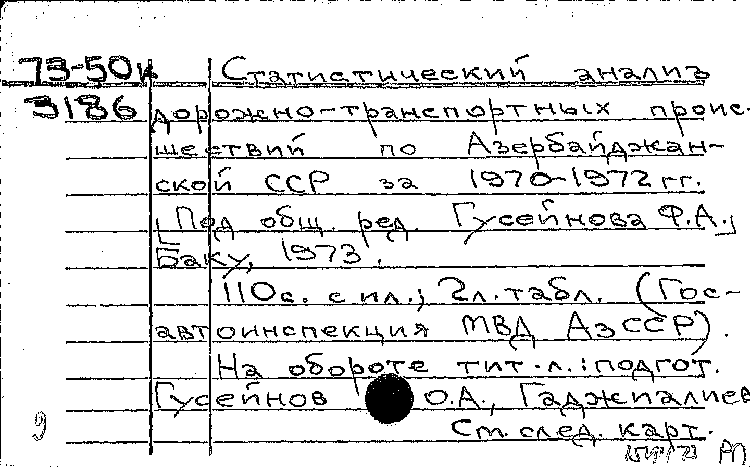 73-50к Статистический анализ
3186 дорожно-транспортных проис-
шествий по Азербайджан-
ской ССР за 1970-1972 гг.
[Под общ. ред. Гусейнова Ф.А.]
Баку, 1973.
110с. с ил.; 2л. табл. (Гос-
автоинспекция МВД АзССР).
На обороте тит. л.: подгот.
Гусейнов О.А., Гаджиалиев
9 См. след. карт.